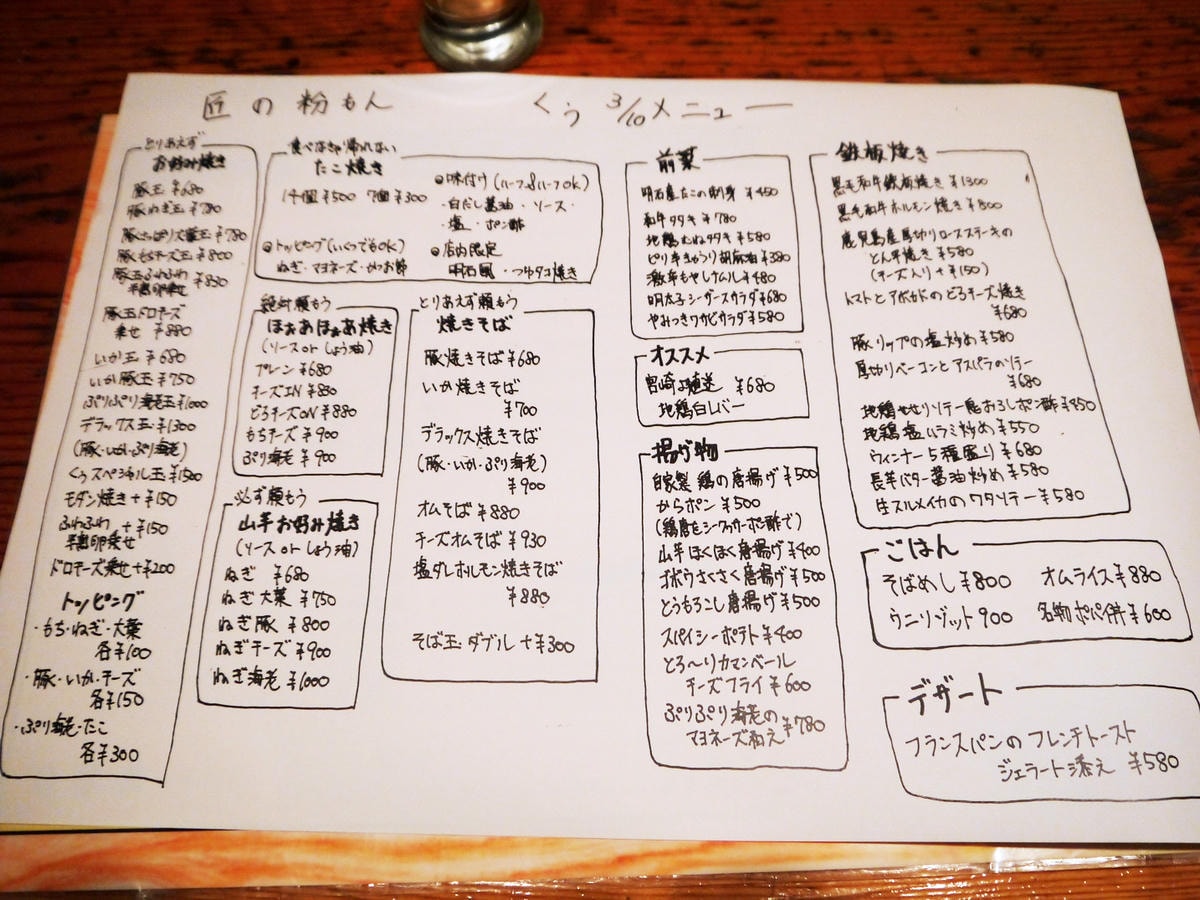 匠の粉もん くう 3/10メニュー
とりあえず
お好み焼き
豚玉 ¥680
豚ねぎ玉 ¥780
豚さっぱり大葉玉 ¥780
豚もちチーズ玉 ¥800
豚玉ふわふわ
半熟卵乗せ ¥850
豚玉ドロチーズ
乗せ ¥880
いか玉 ¥680
いか豚玉 ¥750
ぷりぷり海老玉 ¥1000
デラックス玉 ¥1300
(豚・いか・ぷり海老)
くぅスペシャル玉 ¥1500
モダン焼き +¥150
ふわふわ
半熟卵乗せ +¥150
ドロチーズ乗せ +¥200
トッピング
・もち・ねぎ・大葉
各¥100
・豚・いか・チーズ
各¥150
・ぷり海老・たこ
各¥300
食べなきゃ帰れない
たこ焼き
14個 ¥500 7個 ¥300
●トッピング(いくつでもOK)
ねぎ・マヨネーズ・かつお節
●味付け(ハーフ&ハーフOK)
・白だし醤油・ソース・
・塩・ポン酢
●店内限定
明石風・つゆタコ焼き
絶対頼もう
ほぁあほぁあ焼き
(ソース or しょう油)
プレーン ¥680
チーズIN ¥830
どろチーズON ¥880
もちチーズ ¥900
ぷり海老 ¥900
必ず頼もう
山芋お好み焼き
(ソース or しょう油)
ねぎ ¥680
ねぎ大葉 ¥750
ねぎ豚 ¥800
ねぎチーズ ¥900
ねぎ海老 ¥1000
とりあえず頼もう
焼きそば
豚焼きそば ¥680
いか焼きそば
¥700
デラックス焼きそば
(豚・いか・ぷり海老)
¥900
オムそば ¥880
チーズオムそば ¥930
塩ダレホルモン焼きそば
¥880
そば玉・ダブル +¥300
前菜
明石産たこの刺身 ¥450
和牛タタキ ¥780
地鶏むねタタキ ¥580
ピリ辛きゅうり胡麻油 ¥380
激辛もやしナムル ¥480
明太子シーザーサラダ ¥680
やみつきワサビサラダ ¥580
オススメ
宮崎より直送 ¥680
地鶏白レバー
揚げ物
自家製 鶏の唐揚げ ¥500
からポン ¥500
(鶏唐をシークヮサーポン酢で)
山芋ほくほく唐揚げ ¥400
ゴボウさくさく唐揚げ ¥500
とうもろこし唐揚げ ¥500
スパイシーポテト ¥400
とろ〜りカマンベール
チーズフライ ¥600
ぷりぷり海老の
マヨネーズ和え ¥780
鉄板焼き
黒毛和牛鉄板焼き ¥1300
黒毛和牛ホルモン焼き ¥800
鹿児島産厚切りロースステーキの
とん平焼き ¥580
(チーズ入り +¥150)
トマトとアボカドのどろチーズ焼き
¥680
豚トリップの塩炒め ¥580
厚切りベーコンとアスパラのソテー
¥680
地鶏せせりソテー 鬼おろしポン酢 ¥850
地鶏 塩ハラミ炒め ¥550
ウィンナー5種盛り ¥680
長芋バター醤油炒め ¥580
生スルメイカのワタソテー ¥580
ごはん
そばめし ¥800 オムライス ¥880
ウニリゾット 900 名物ポパイ丼 ¥600
デザート
フランスパンのフレンチトースト
ジェラート添え ¥580